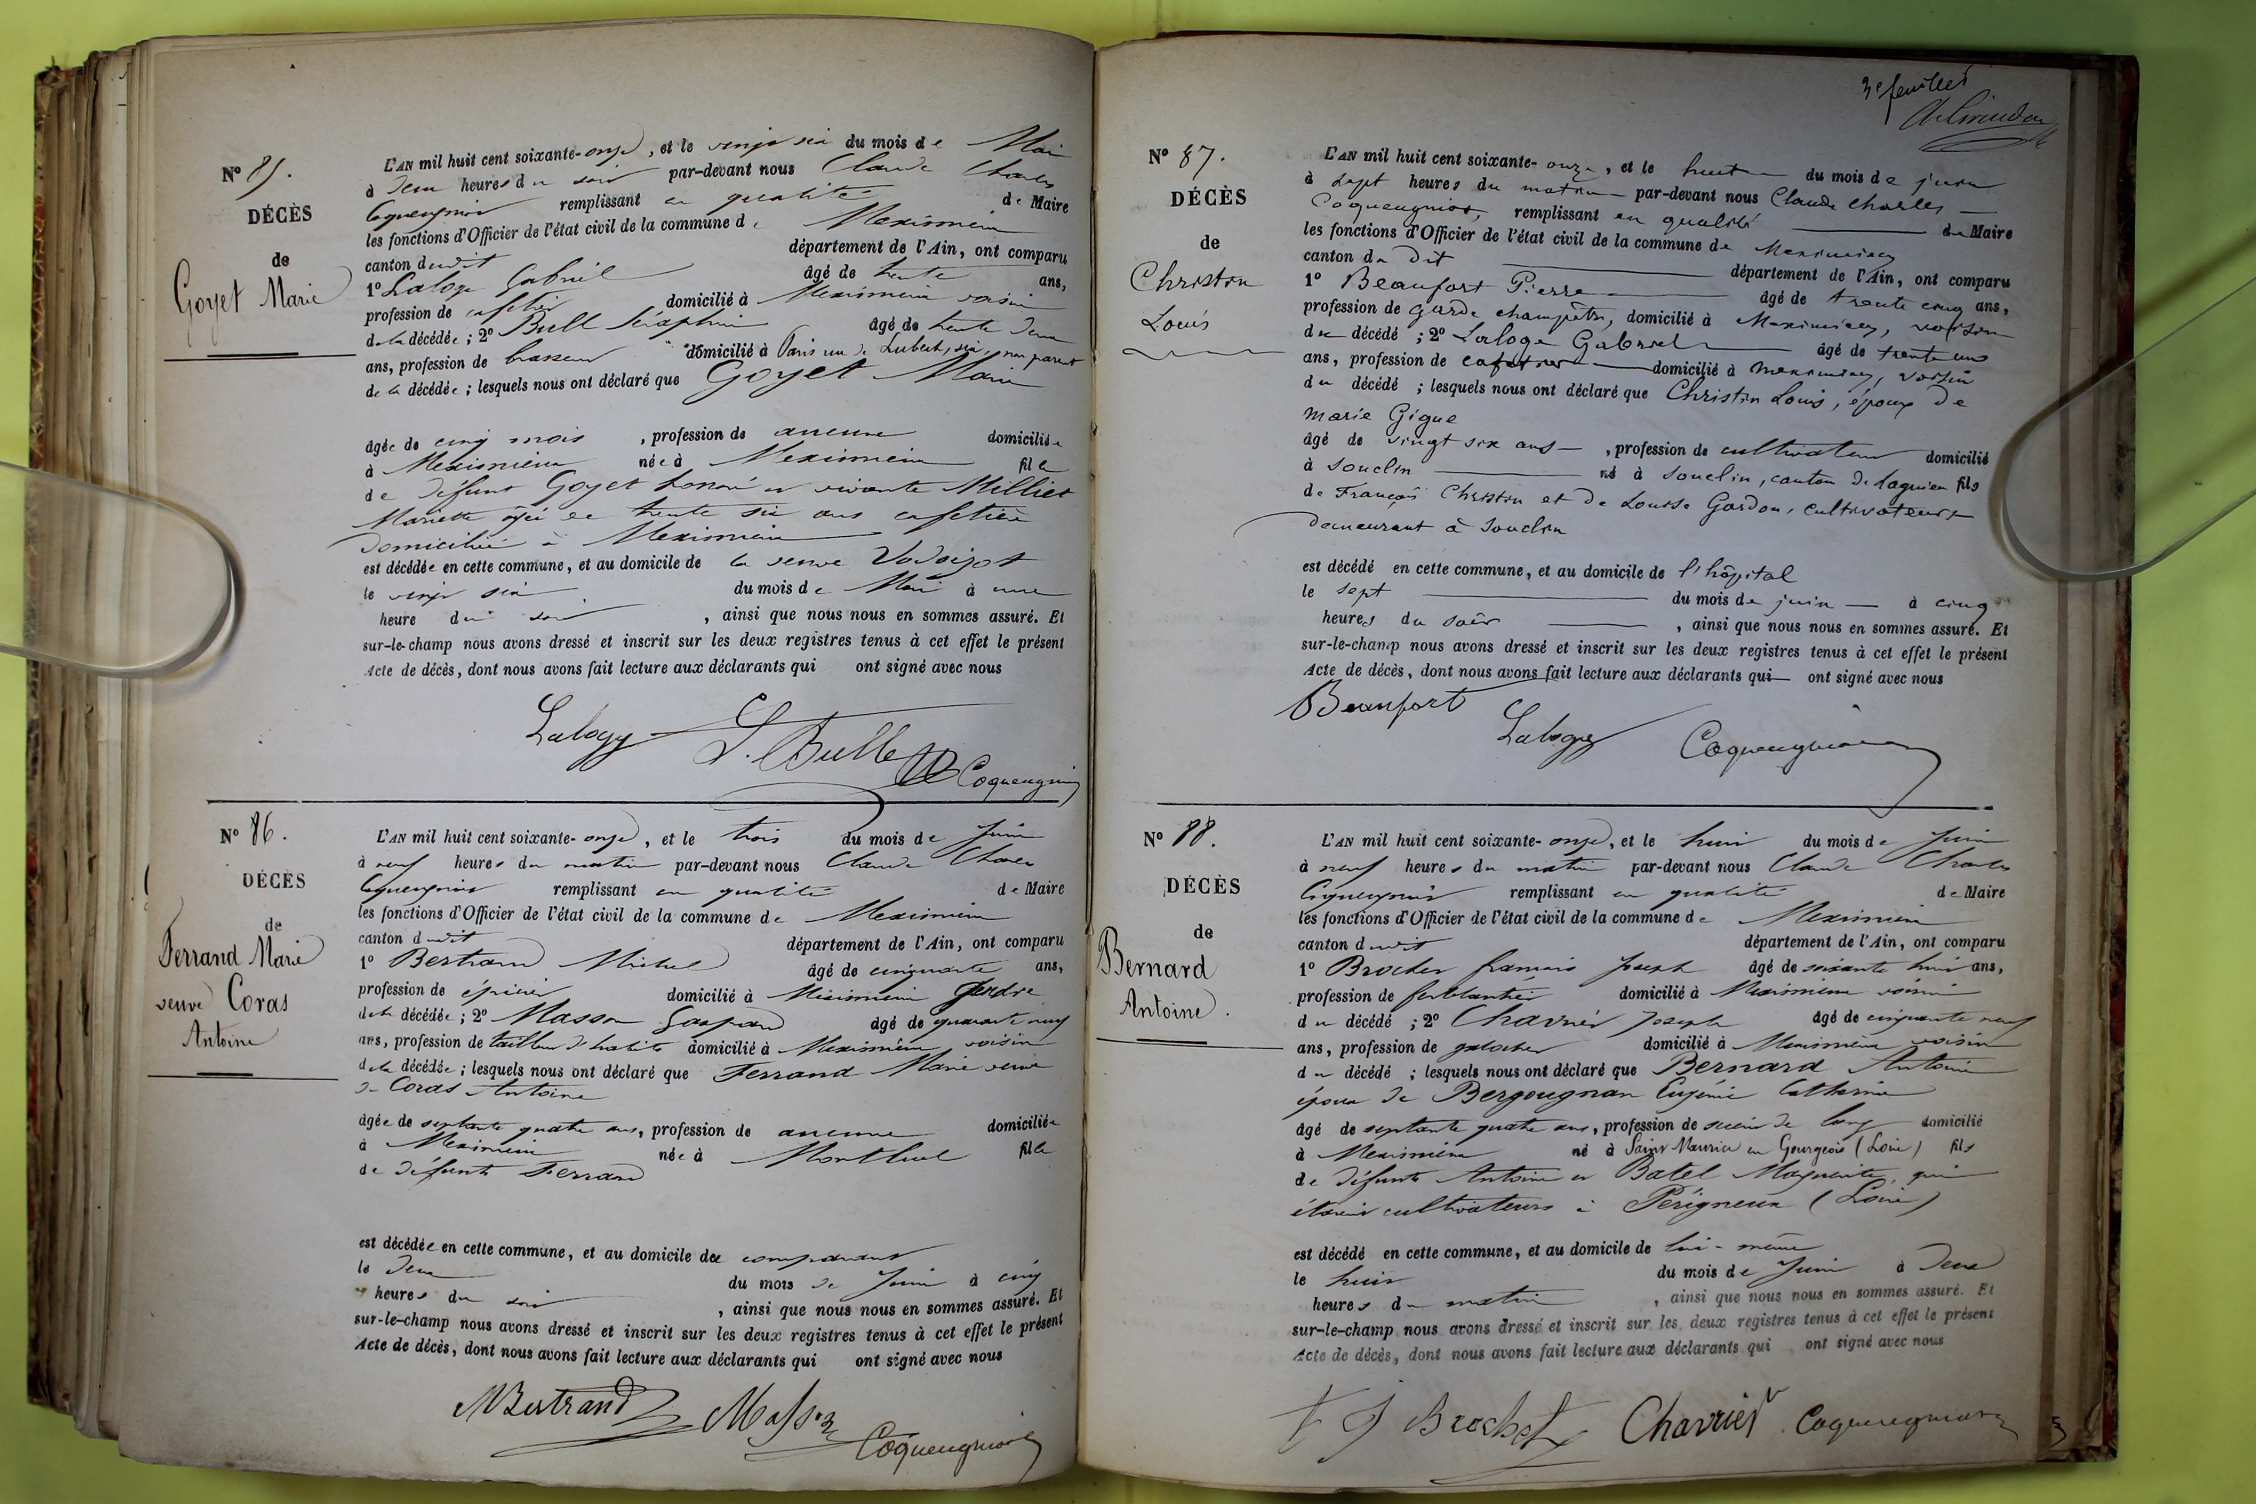 N° 85.
DÉCÈS
de
Goyet Marie
L'AN mil huit cent soixante-onze, et le vingt six du mois de Mai
à deux heures du soir par-devant nous Claude Charles
Coqueugniot remplissant en qualité de Maire
les fonctions d'Officier de l'état civil de la commune de Meximieux
canton dudit département de l'Ain, ont comparu
1° Laloge Gabriel âgé de trente ans,
profession de cafetier domicilié à Meximieux voisin
de la décédée ; 2° Bull Séraphin âgé de trente deux
ans, profession de brasseur domicilié à Paris rue de Lubeck, six, non parent
de la décédée ; lesquels nous ont déclaré que Goyet Marie
âgée de cinq mois , profession de aucune domiciliée
à Meximieux née à Meximieux fille
de défunt Goyet honoré et vivante Milliet
Mariette âgée de trente six ans cafetière
domiciliée à Meximieux
est décédée en cette commune, et au domicile de la veuve
le vingt six du mois de Mai à une
heure du soir , ainsi que nous nous en sommes assuré. Et
sur-le-champ nous avons dressé et inscrit sur les deux registres tenus à cet effet le présent
Acte de décès, dont nous avons fait lecture aux déclarants qui ont signé avec nous
Laloge S. Bulle Coqueugniot
N° 86.
DÉCÈS
de
Ferrand Marie
veuve Coras
Antoine
L'AN mil huit cent soixante-onze, et le trois du mois de Juin
à neuf heures du matin par-devant nous Claude Charles
Coqueugniot remplissant en qualité de Maire
les fonctions d'Officier de l'état civil de la commune de Meximieux
canton dudit département de l'Ain, ont comparu
1° Bertrand Michel âgé de cinquante ans,
profession de épicier domicilié à Meximieux gendre
de la décédée ; 2° Masson Gaspard âgé de quarante neuf
ans, profession de tailleur d'habits domicilié à Meximieux voisin
de la décédée ; lesquels nous ont déclaré que Ferrand Marie veuve
de Coras Antoine
âgée de septante quatre ans, profession de aucune domiciliée
à Meximieux née à Montluel fille
de défunts Ferrand
est décédée en cette commune, et au domicile de comparant
le deux du mois de Juin à cinq
heures du soir , ainsi que nous nous en sommes assuré. Et
sur-le-champ nous avons dressé et inscrit sur les deux registres tenus à cet effet le présent
Acte de décès, dont nous avons fait lecture aux déclarants qui ont signé avec nous
M Bertrand Masson Coqueugniot
3e feuillet
N° 87.
DÉCÈS
de
Christin
Louis
L'AN mil huit cent soixante-onze, et le huit du mois de juin
à sept heures du matin par-devant nous Claude Charles
Coqueugniot, remplissant en qualité de Maire
les fonctions d'Officier de l'état civil de la commune de Meximieux
canton du dit département de l'Ain, ont comparu
1° Beaufort Pierre âgé de trente cinq ans,
profession de garde champêtre, domicilié à Meximieux, voisin
du décédé ; 2° Laloge Gabriel âgé de trente un
ans, profession de cafetier domicilié à Meximieux, voisin
du décédé ; lesquels nous ont déclaré que Christin Louis, époux de
marie Gigue
âgé de vingt six ans , profession de cultivateur domicilié
à Souclin né à Souclin, canton de Lagnieu fils
de François Christin et de Louise Gardon, cultivateurs
demeurant à Souclin
est décédé en cette commune, et au domicile de l'hôpital
le sept du mois de juin à cinq
heures du soir , ainsi que nous nous en sommes assuré. Et
sur-le-champ nous avons dressé et inscrit sur les deux registres tenus à cet effet le présent
Acte de décès, dont nous avons fait lecture aux déclarants qui ont signé avec nous
Beaufort Laloge Coqueugniot
N° 88.
DÉCÈS
de
Bernard
Antoine.
L'AN mil huit cent soixante-onze, et le huit du mois de Juin
à neuf heures du matin par-devant nous Claude Charles
Coqueugniot remplissant en qualité de Maire
les fonctions d'Officier de l'état civil de la commune de Meximieux
canton dudit département de l'Ain, ont comparu
1° Brochet françois Joseph âgé de soixante huit ans,
profession de ferblantier domicilié à Meximieux voisin
du décédé ; 2° Charvier Joseph âgé de cinquante neuf
ans, profession de galocher domicilié à Meximieux voisin
du décédé ; lesquels nous ont déclaré que Bernard Antoine
époux de Bergougnan Eugénie Catherine
âgé de septante quatre ans, profession de scieur de long domicilié
à Meximieux né à Saint Maurice en Gourgois (Loire) fils
de défunts Antoine et Batel Marguerite, qui
étaient cultivateurs à Périgneux (Loire)
est décédé en cette commune, et au domicile de lui-même
le huit du mois de Juin à deux
heures du matin , ainsi que nous nous en sommes assuré. Et
sur-le-champ nous avons dressé et inscrit sur les deux registres tenus à cet effet le présent
Acte de décès, dont nous avons fait lecture aux déclarants qui ont signé avec nous
f J Brochet Charvier Coqueugniot